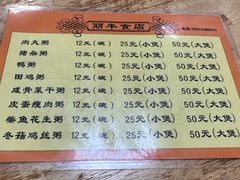 丽丰食店
肉丸粥 12元(碗) 25元(小煲) 50元(大煲)
猪杂粥 12元(碗) 25元(小煲) 50元(大煲)
鸭粥 12元(碗) 25元(小煲) 50元(大煲)
田鸡粥 12元(碗) 25元(小煲) 50元(大煲)
咸骨菜干粥 12元(碗) 25元(小煲) 50元(大煲)
皮蛋瘦肉粥 12元(碗) 25元(小煲) 50元(大煲)
柴鱼花生粥 12元(碗) 25元(小煲) 50元(大煲)
冬菇鸡丝粥 12元(碗) 25元(小煲) 50元(大煲)